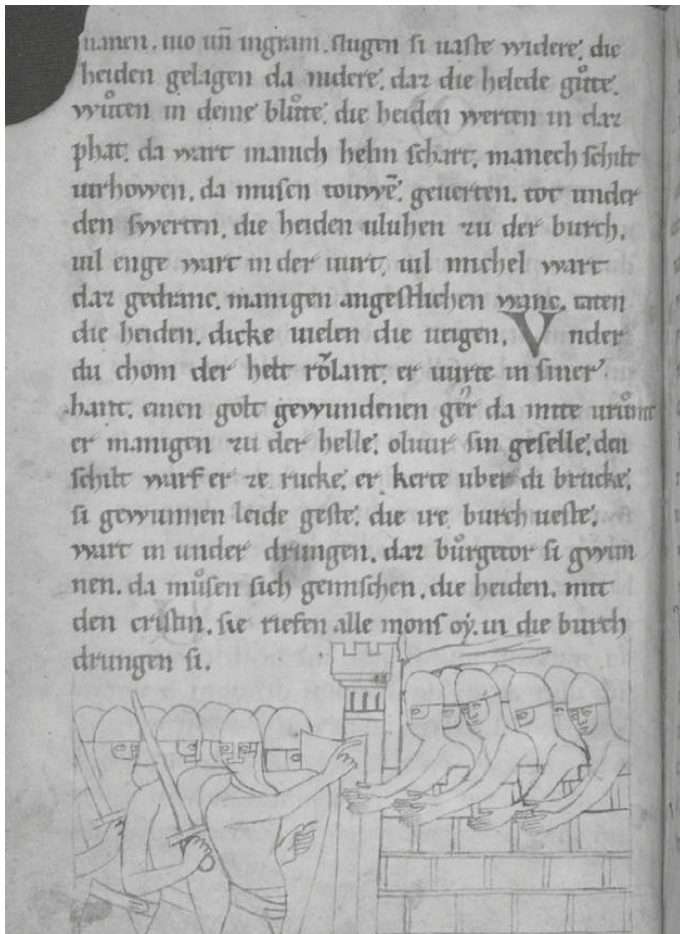 nanen. iuo un̄ ingram. slugen si uaste widere. die
heiden gelagen da nidere. daz die helede gůte.
wůten in deme blůte. die heiden werten in daz
phat. da wart manich helm schart. manech schilt
uirhowen. da musen touwē. geuerten. tot under
den swerten. die heiden uluhen zu der burch.
uil enge wart in der uurt. uil michel wart
daz gedranc. manigen angestlichen wanc. taten
die heiden. dicke uielen die ueigen. Vnder
du chom der helt rǒlant. er uůrte in siner
hant. einen golt gewundenen gēr da mite urůmt
er manigen zu der helle. oliuir sin geselle. den
schilt warf er ze rucke. er kerte uber di brucke.
si gewunnen leide geste. die ire burch ueste.
wart in under drungen. daz bůrgetor si gwun
nen. da můsen sich gemischen. die heiden. mit
den cristin. sie riefen alle mons oẏ. in die burch
drungen si.